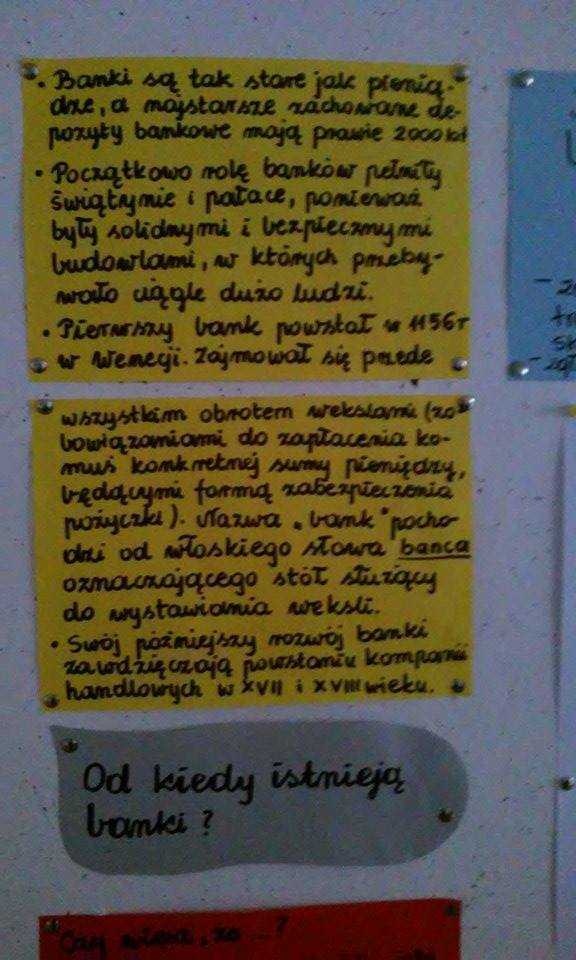 • Banki są tak stare jak pienią-
dze, a najstarsze zachowane de-
pozyty bankowe mają prawie 2000 lat
• Początkowo rolę banków pełniły
świątynie i pałace, ponieważ
były solidnymi i bezpiecznymi
budowlami, w których przeby-
wało ciągle dużo ludzi.
• Pierwszy bank powstał w 1156r
w Wenecji. Zajmował się przede
wszystkim obrotem wekslami (zo-
bowiązaniami do zapłacenia ko-
muś konkretnej sumy pieniędzy,
będącymi formą zabezpieczenia
pożyczki). Nazwa „bank" pocho-
dzi od włoskiego słowa banca
oznaczającego stół służący
do wystawiania weksli.
• Swój późniejszy rozwój banki
zawdzięczają powstaniu kompanii
handlowych w XVII i XVIII wieku.
Od kiedy istnieją
banki?
Czy wiesz, że ...?